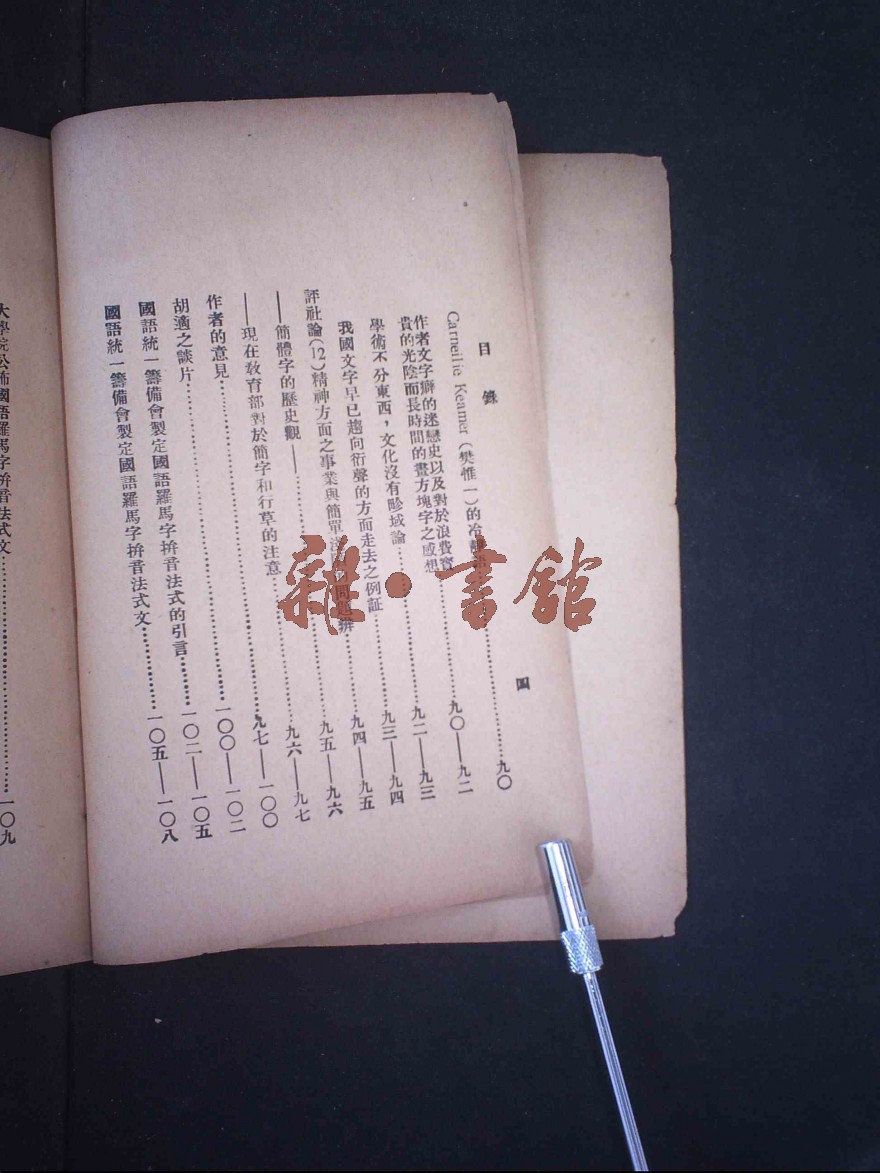 目錄
四
Carneilie Keamer (樊惟一) 的冷……九〇
作者文字癖的迷戀史以及對於浪費寶
貴的光陰而長時間的畫方塊字之感想……九〇——九二
學術不分東西，文化沒有畛域論……九二——九三
我國文字早已趨向衍聲的方面走去之例証……九三——九四
評社論(12)精神方面之事業與簡單問題辨……九四——九五
——簡體字的歷史觀——……九五——九六
——現在教育部對於簡字和行草的注意……九六——九七
作者的意見……九七——一〇〇
胡適之談片……一〇〇——一〇二
國語統一籌備會製定國語羅馬字拼音法式的引言……一〇二——一〇五
國語統一籌備會製定國語羅馬字拼音法式文……一〇五——一〇八
大學院公佈國語羅馬字拼音法式文……一〇九
雜·書館